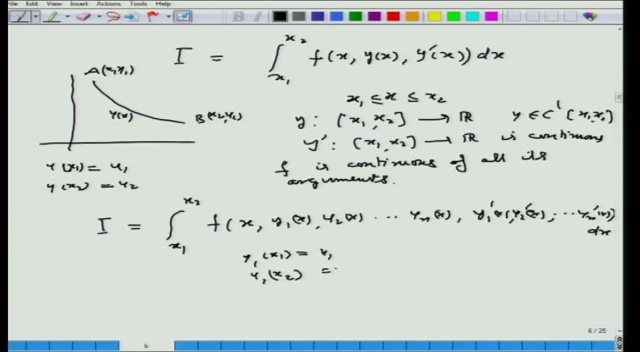 File Edit View Insert Actions Tools Help
I = ∫_{x1}^{x2} f(x, y(x), y'(x)) dx
A(x1,y1)
x1 ≤ x ≤ x2
y(x)
B(x2,y2)
y : [x1, x2] → ℝ y ∈ C' [x1, x2]
y' : [x1, x2] → ℝ is continuous
y(x1) = y1
y(x2) = y2
f is continuous of all its
arguments.
I = ∫_{x1}^{x2} f(x, y1(x), y2(x) ... yn(x), y1'(x), y2'(x), ... yn'(x))
dx
y1(x1) = y1
y1(x2) =
6 / 25
6